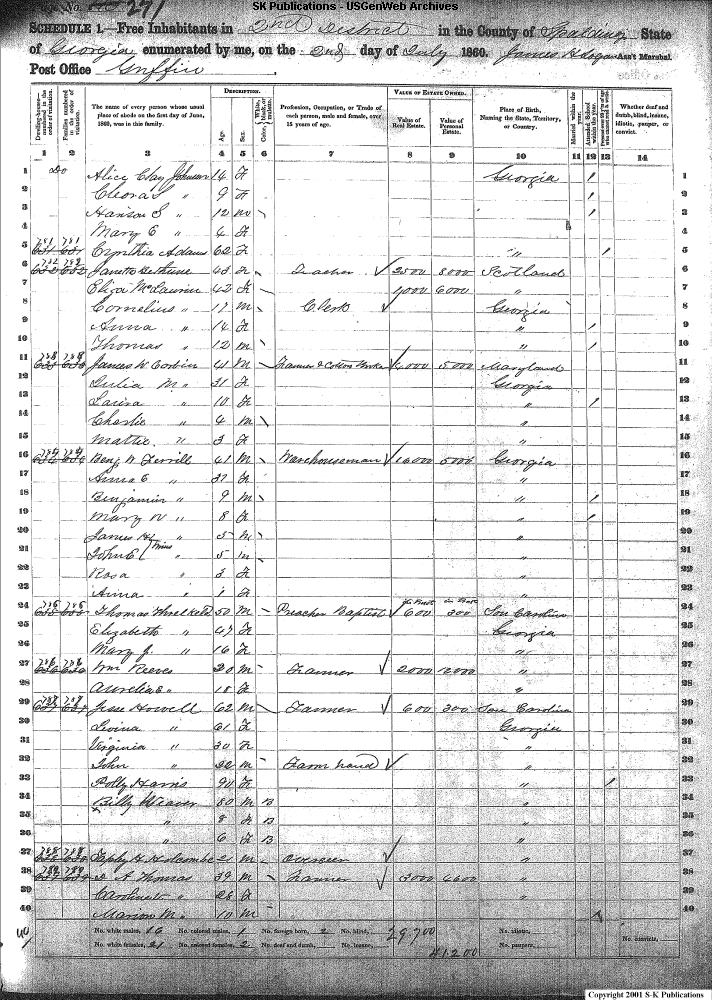 SK Publications - USGenWeb Archives
Page No. 271
SCHEDULE 1.—Free Inhabitants in 2nd District in the County of Spalding State
of Georgia enumerated by me, on the 2nd day of July 1860. James H Logan Ass't Marshal.
Post Office Griffin
DESCRIPTION. VALUE OF ESTATE OWNED.
Dwelling-houses—numbered in the order of visitation. Families numbered in the order of visitation. The name of every person whose usual place of abode on the first day of June, 1860, was in this family. Age. Sex. Color, White, black, or mulatto. Profession, Occupation, or Trade of each person, male and female, over 15 years of age. Value of Real Estate. Value of Personal Estate. Place of Birth, Naming the State, Territory, or Country. Married within the year. Attended School within the year. Whether deaf and dumb, blind, insane, idiotic, pauper, or convict.
1 2 3 4 5 6 7 8 9 10 11 12 13 14
1 Do Alice Clay Johnson 14 F Georgia / 1
2 Cleora S " 9 F / 2
3 Hanson S " 12 m / 3
4 Mary E " 4 F 4
5 781 781 Cynthia Adams 62 F " / 5
6 782 782 Janette Bethune 43 F Teacher 2500 8000 Scotland 6
7 Eliza McLaurin 42 F 1,000 6000 " 7
8 Cornelius " 17 m Clerk Georgia 8
9 Anna " 14 F " / 9
10 Thomas " 12 m " / 10
11 783 783 James W Corbin 41 m 5000 Maryland 11
12 Julia M " 31 F Georgia 12
13 " 10 F " / 13
14 Charlie " 4 m " 14
15 Mattie " 3 F " 15
16 784 784 Benj W Ferrill 41 m Warehouseman 5000 Georgia 16
17 Anna E " 37 F " 17
18 Benjamin " 9 m " / 18
19 Mary W " 8 F " / 19
20 James H " 5 m " 20
21 John E " Twins 5 m " 21
22 Rosa " 3 F " 22
23 Anna " 1 F " 23
24 785 785 Thomas Threlkeld 50 m Preacher Baptist 600 300 Sou Carolina 24
25 Elizabeth " 47 F Georgia 25
26 Mary J. " 16 F " 26
27 786 786 Wm Reeves 30 m Farmer 2000 12000 " 27
28 Aurelia E " 18 F " 28
29 787 787 Jesse Howell 62 m Farmer 600 300 Sou Carolina 29
30 Levina " 61 F Georgia 30
31 Virginia " 30 F " 31
32 John " 20 m Farm hand " 32
33 Polly Harris 90 F " / 33
34 Billy Weaver 80 m B " 34
35 " 8 B " 35
36 6 F B " 36
37 788 788 Holcombe 21 m Overseer " 37
38 789 789 A Thomas 39 m Farmer 3000 4600 " 38
39 Caroline " 28 F " 39
40 Marion M " 10 m / 40
No. white males, 16 No. colored males, 1 No. foreign born, 2 No. blind, 29,700 No. idiotic,
No. white females, 21 No. colored females, 2 No. deaf and dumb, No. insane, 41200 No. paupers, No. convicts,
Copyright 2001 S-K Publications